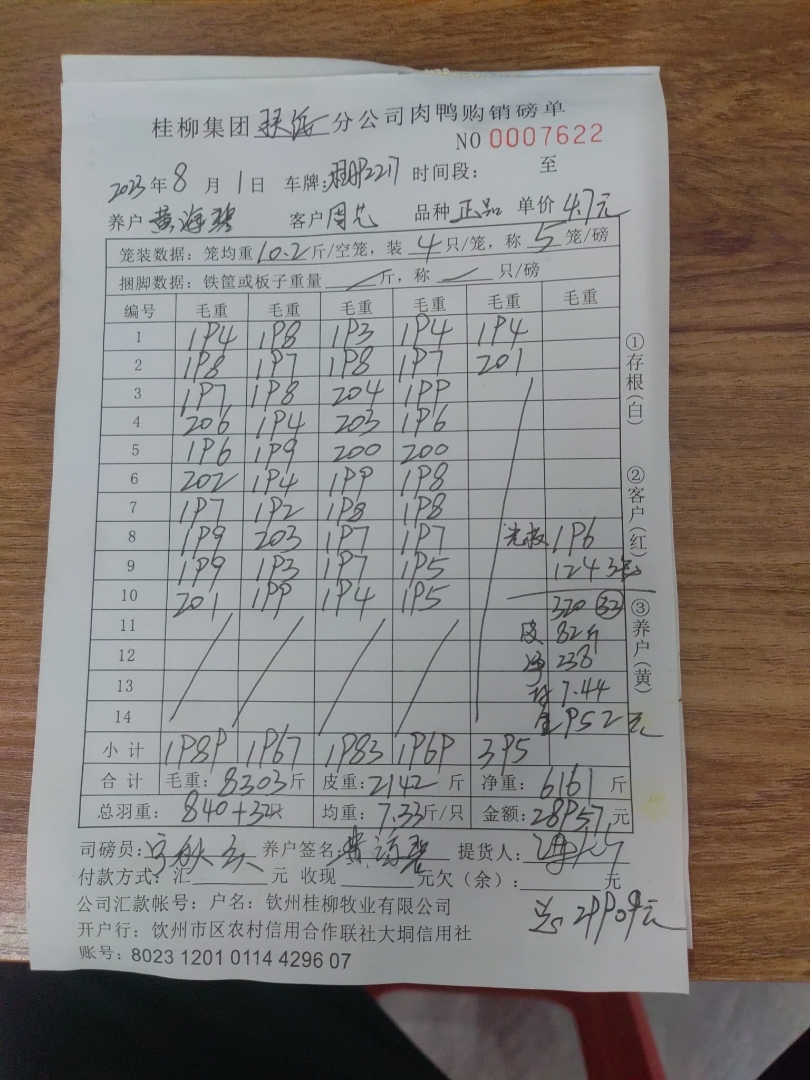 桂柳集团 分公司肉鸭购销磅单
NO 0007622
2023年8月1日 车牌: 2217 时间段: 至
养户 黄海碧 客户 周芯 品种 正品 单价 4.7元
笼装数据：笼均重10.2斤/空笼，装4只/笼，称5笼/磅
捆脚数据：铁筐或板子重量 斤，称 只/磅
编号 毛重 毛重 毛重 毛重 毛重 毛重
1 194 198 193 194 194
2 198 197 198 197 201
3 197 198 204 199
4 206 194 203 196
5 196 199 200 200
6 202 194 199 198
7 197 192 198 198
8 199 203 197 197 196
9 199 193 197 195 124
10 201 199 194 195 320 32
11 皮 82斤
12 净 238
13 7.44
14 金 952元
小计 1989 1967 1983 1969 395
合计 毛重：8303斤 皮重：2142斤 净重：6161斤
总羽重：840+32只 均重：7.33斤/只 金额：28957元
司磅员： 养户签名：黄海碧 提货人：
付款方式：汇 元 收现 元欠（余）： 元
公司汇款帐号： 户名：钦州桂柳牧业有限公司
总29909元
开户行：钦州市区农村信用合作联社大垌信用社
账号：8023 1201 0114 4296 07
①存根(白) ②客户(红) ③养户(黄)